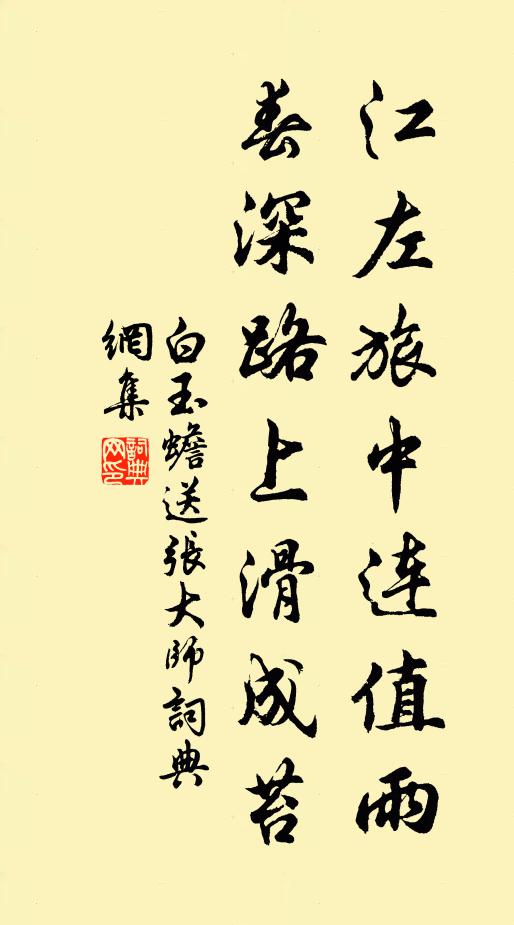 江左旅中連值雨
春深路上滑成苔
白玉蟾送張大師詞典
網集
詞典
网印